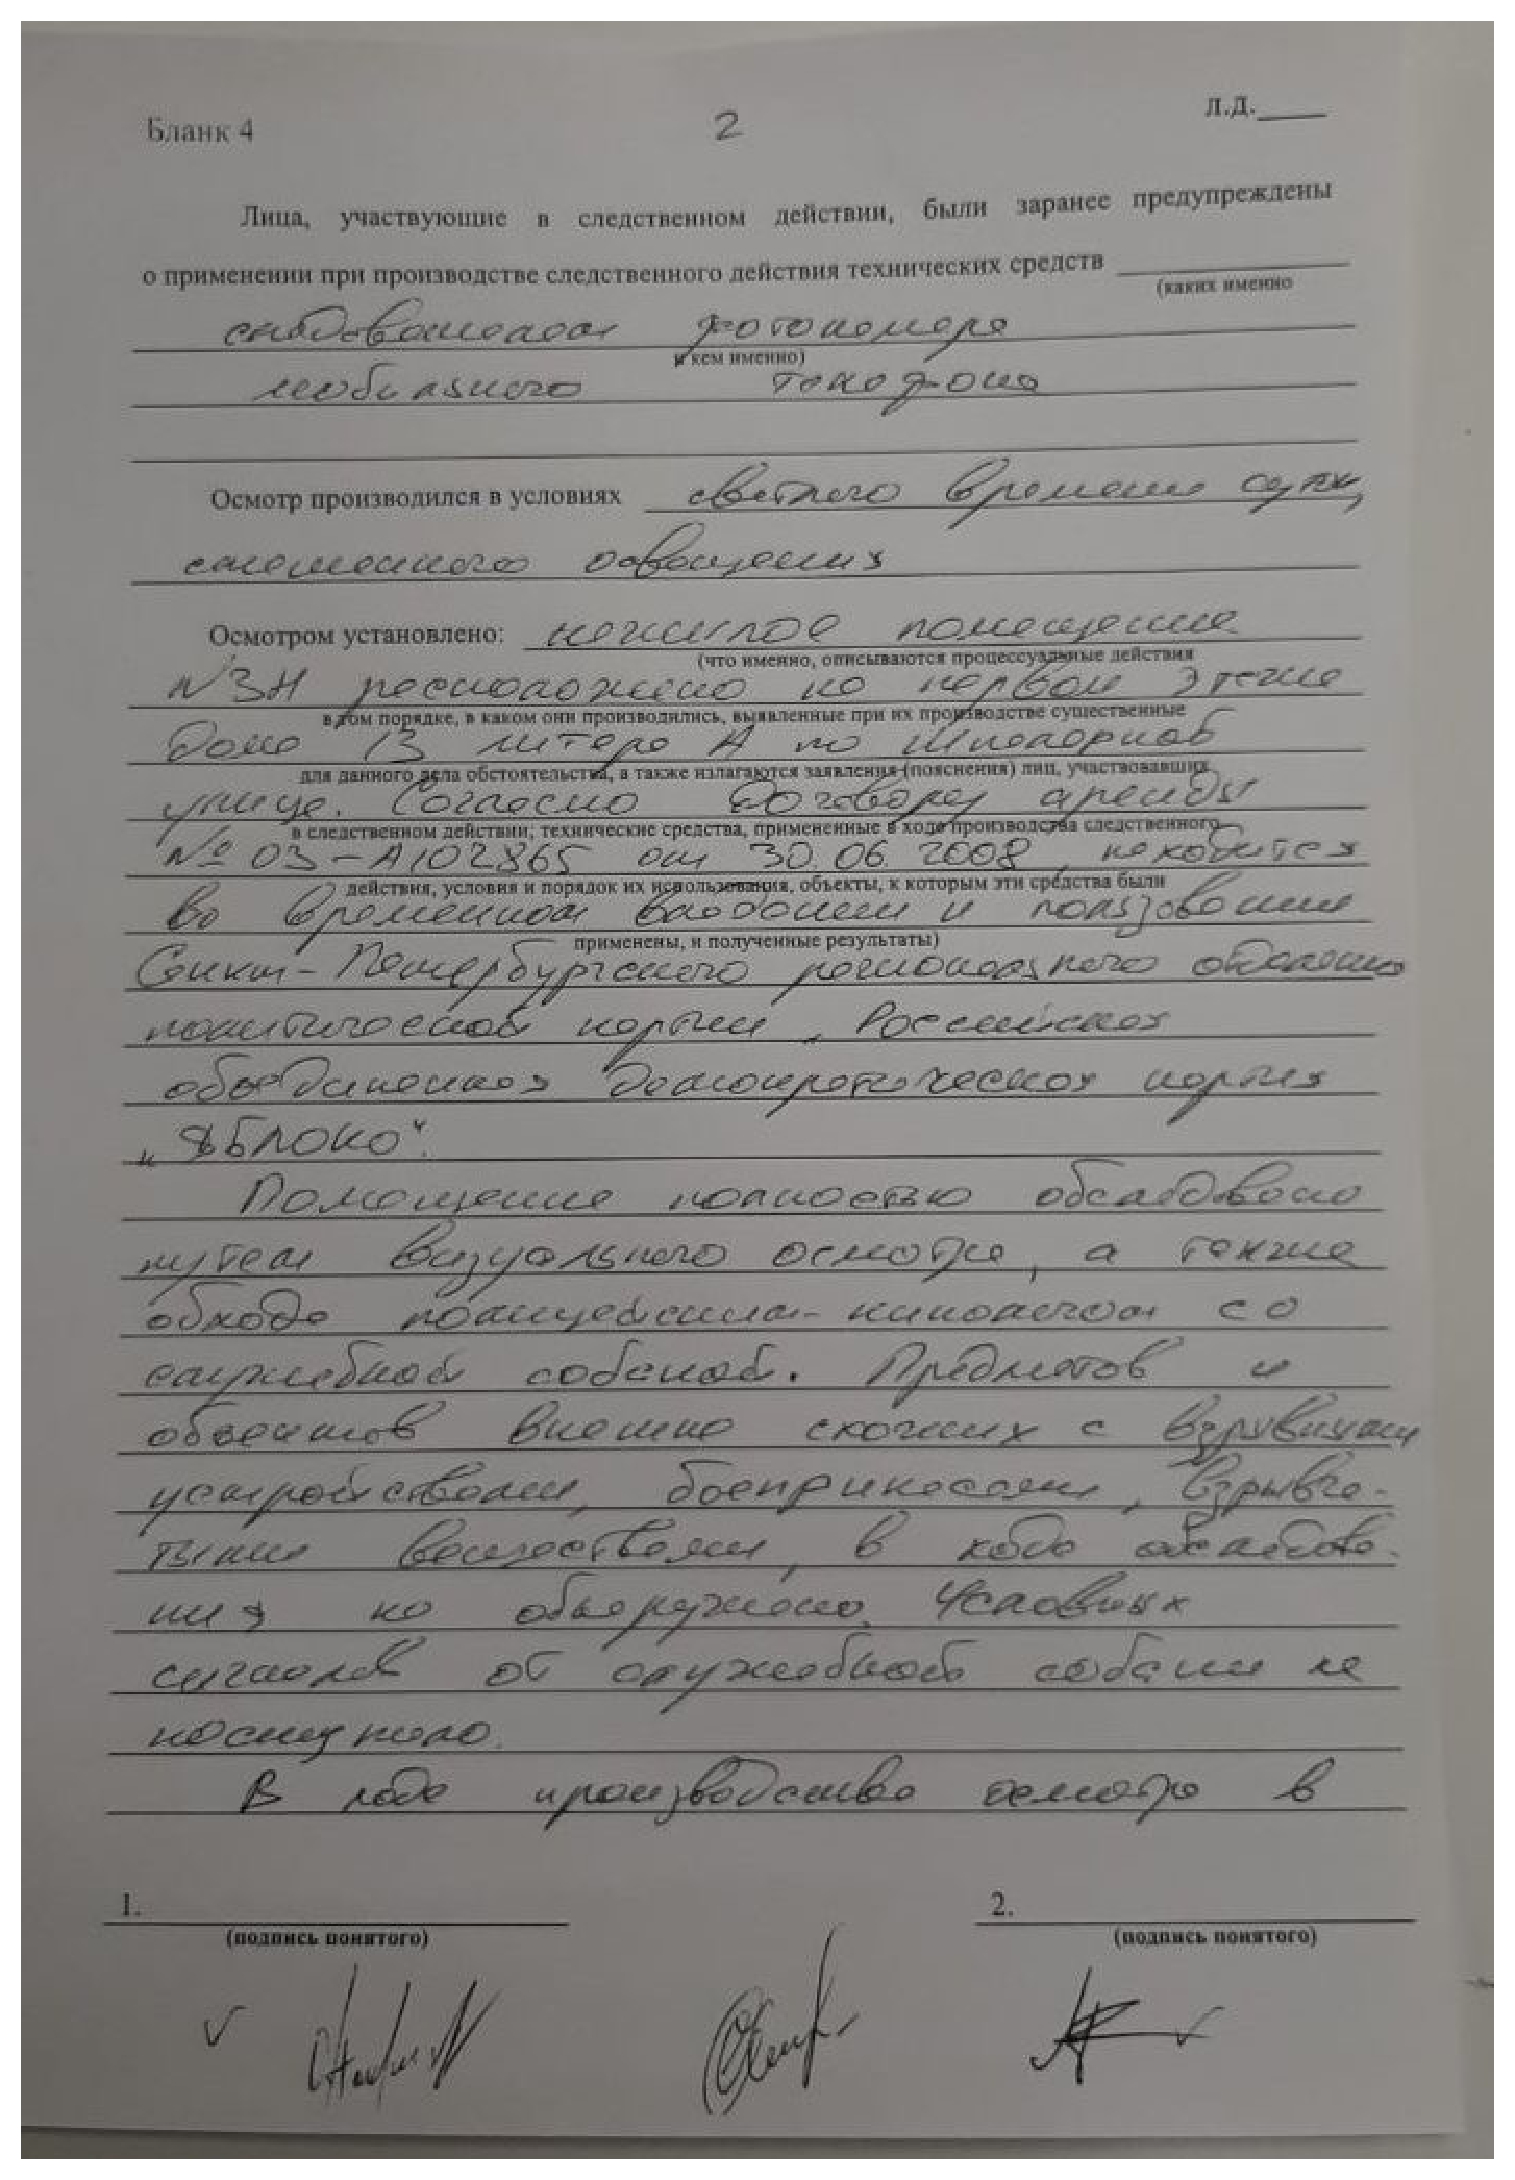 Бланк 4
2
Л.Д.
Лица, участвующие в следственном действии, были заранее предупреждены
о применении при производстве следственного действия технических средств
(каких именно
следователем фотокамера
и кем именно)
мобильного телефона
Осмотр производился в условиях светлого времени суток,
смешанного освещения
Осмотром установлено: нежилое помещение
(что именно, описываются процессуальные действия
№3Н расположено на первом этаже
в том порядке, в каком они производились, выявленные при их производстве существенные
дома 13 литера А по Шпалерной
для данного дела обстоятельства, а также излагаются заявления (пояснения) лиц, участвовавших
улице. Согласно договору аренды
в следственном действии; технические средства, примененные в ходе производства следственного
№ 03-А102865 от 30.06.2008, находится
действия, условия и порядок их использования, объекты, к которым эти средства были
во временном владении и пользовании
применены, и полученные результаты)
Санкт-Петербургского регионального отделения
политической партии „Российская
объединенная демократическая партия
„ЯБЛОКО“.
Помещение полностью обследовано
путем визуального осмотра, а также
обхода полицейским-кинологом со
служебной собакой. Предметов и
объектов внешне схожих с взрывными
устройствами, боеприпасами, взрывча-
тыми веществами, в ходе обследова-
ния не обнаружено. Условных
сигналов от служебной собаки не
поступило.
В ходе производства осмотра в
1.
2.
(подпись понятого)
(подпись понятого)